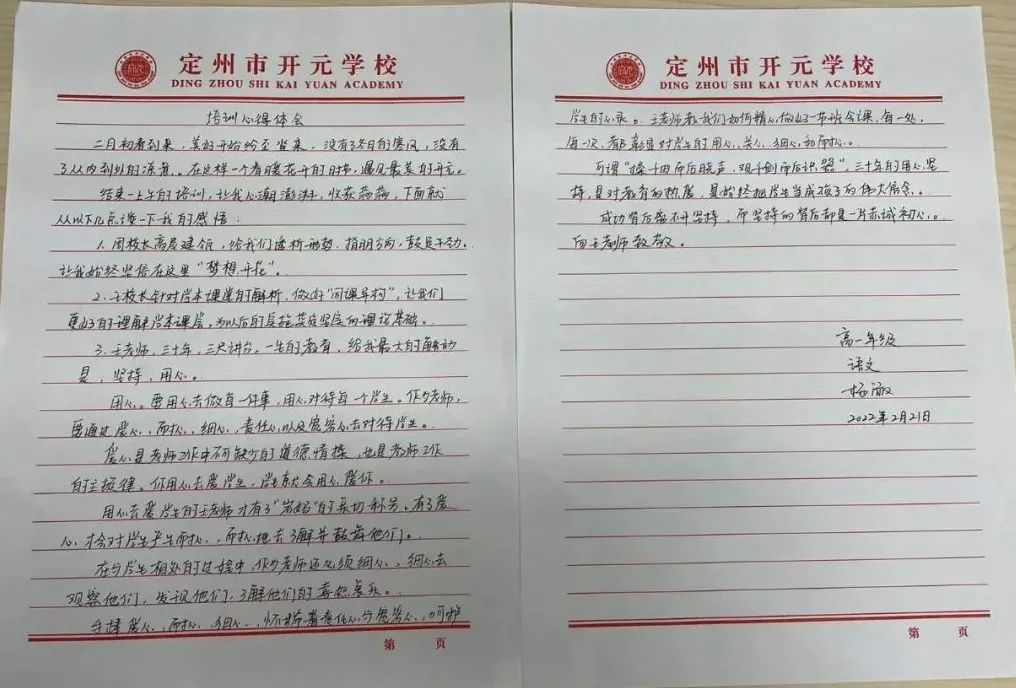 定州市开元学校
DING ZHOU SHI KAI YUAN ACADEMY
培训心得体会
二月初春到来，美好开始给予出来，没有了冬日的寒风，没有
了从内到外的凉意。在这样一个春暖花开的时节，遇见最美的开元。
结束一上午的培训，让我心潮澎湃，收获满满，下面就
从以下几点谈一下我的感悟：
1、闫校长高屋建瓴，给我们透析形势，指明方向，鼓足干劲。
让我始终坚信在这里“梦想开花”。
2、王校长针对岩本课堂的解析，做好“同课异构”，让我们
更好的理解岩本课层，为以后的实施奠定坚实的理论基础。
3、王老师，三十年，三尺讲台，一生的教育，给我最大的触动
是，坚持，用心。
用心。要用心去做每一件事，用心对待每一个学生。作为老师，
要通过爱心、耐心、细心、责任心以及宽容心去对待学生。
爱心是老师工作中不可缺少的道德情操，也是老师工作
的主旋律。你用心去爱学生，学生就会用心爱你。
用心去爱学生的王老师才有了“岩妈”的亲切称号。有了爱
心，才会对学生产生耐心，耐心地去了解并鼓舞他们。
在与学生相处的过程中，作为老师还必须细心，细心去
观察他们，发现他们，了解他们的喜怒哀乐。
爱心、耐心、细心、怀揣着责任心与宽容心，呵护
第 页
定州市开元学校
DING ZHOU SHI KAI YUAN ACADEMY
学生的心灵。王老师教我们如何精心做好一节班会课，每一处，
每一次，都彰显对学生的用心、关心、细心和耐心。
可谓“操千曲而后晓声，观千剑而后识器”，三十年的用心坚
持，是对教育的热爱，是始终把学生当成孩子的伟大信念。
成功背后离不开坚持，而坚持的背后却是一片赤诚初心。
向王老师致敬。
高一年级
语文
杨
2022年2月21日
第 页